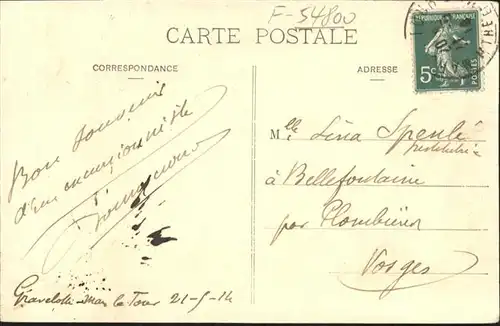 F-54800
CARTE POSTALE
RÉPUBLIQUE FRANÇAISE
5c
POSTES
CORRESPONDANCE
ADRESSE
Bon souvenir
d'un excursionniste
Mlle Lina
Institutrice
à Bellefontaine
par Plombières
Vosges
Gravelotte-Mars la Tour 21-5-14